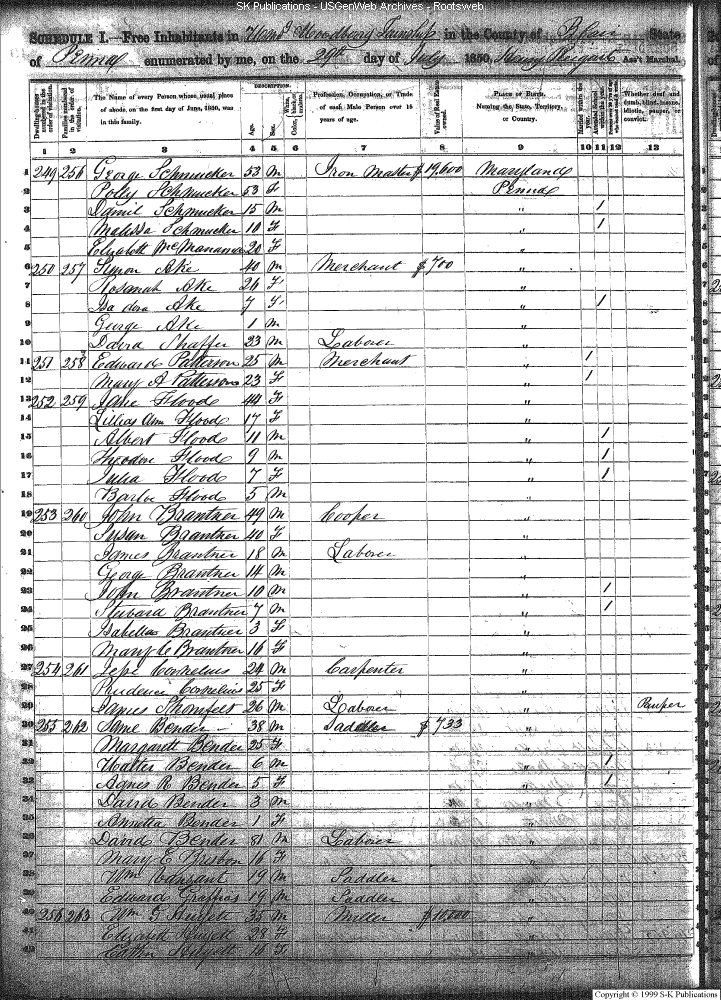 SK Publications - USGenWeb Archives - Rootsweb
SCHEDULE I.—Free Inhabitants in Woodberry Township in the County of Blair State
of Penna enumerated by me, on the 29th day of July 1850. Ass't Marshal.
Dwelling-houses numbered in the order of visitation.
Families numbered in the order of visitation.
The Name of every Person whose usual place of abode, on the first day of June, 1850, was in this family.
DESCRIPTION.
Age.
Sex.
Color,
Profession, Occupation, or Trade of each Male Person over 15 years of age.
Value of Real Estate owned.
PLACE OF BIRTH. Naming the State, Territory, or Country.
Married within the year.
Attended School within the year.
Whether deaf and dumb, blind, insane, idiotic, pauper, or convict.
1 2 3 4 5 6 7 8 9 10 11 12 13
1 249 256 George Schmucker 53 M Iron Master $19,600 Maryland
2 Polly Schmucker 53 F Penna
3 Daniel Schmucker 15 M " /
4 Malissa Schmucker 10 F " /
5 Elizabeth McManama 20 F "
6 250 257 Simon Ake 40 M Merchant $700 "
7 Rosanah Ake 26 F "
8 Isadora Ake 7 F " /
9 George Ake 1 M "
10 David Shaffer 23 M Laborer "
11 251 258 Edward Patterson 25 M Merchant " /
12 Mary A Patterson 23 F " /
13 252 259 Jane Flood 44 F "
14 Lillias Ann Flood 17 F "
15 Albert Flood 11 M " /
16 Theodore Flood 9 M " /
17 Julia Flood 7 F " /
18 Flood 5 M "
19 253 260 John Brantner 49 M Cooper "
20 Susan Brantner 40 F "
21 James Brantner 18 M Laborer "
22 George Brantner 14 M "
23 John Brantner 10 M " /
24 Steward Brantner 7 M " /
25 Isabella Brantner 3 F "
26 Mary C Brantner 16 F "
27 254 261 Cornelius 24 M Carpenter "
28 Prudence Cornelius 25 F "
29 James 26 M Laborer " Pauper
30 255 262 Bender 38 M Saddler $733 "
31 Margarett Bender 25 F "
32 Walter Bender 6 M " /
33 Agnes R Bender 5 F " /
34 David Bender 3 M "
35 Bender 1 F "
36 David Bender 81 M Laborer "
37 Mary E Brisbon 16 F "
38 Wm 19 M Saddler "
39 Edward 19 M Saddler "
40 256 263 Wm 35 M Miller $10,000 "
41 Elizabeth 28 F "
42 F "
Copyright © 1999 S-K Publications